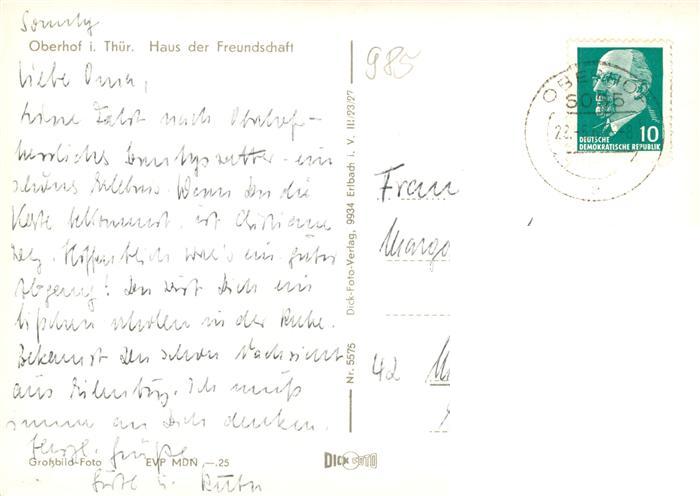 Sonntg
Oberhof i. Thür. Haus der Freundschaft
Liebe Oma,
seine Fahrt nach Oberhof -
herrliches Sonntagswetter - ein
schönes Erlebnis. Wenn Du die
Karte bekommst, ist Christiane
weg. Hoffentlich war's ein guter
Abgang! Du wirst Dich ein
bißchen erholen in der Ruhe.
Bekamst Du schon Nachricht
aus Eilenburg. Ich muß
immer an Dich denken.
Herzl. Grüße
Großbild-Foto EVP MDN -.25
Nr. 5575 Dick-Foto-Verlag, 9934 Erlbach i. V. III/23/27
DICK FOTO
985
OBERHOF
10
DEUTSCHE
DEMOKRATISCHE REPUBLIK
Frau
Marga
42